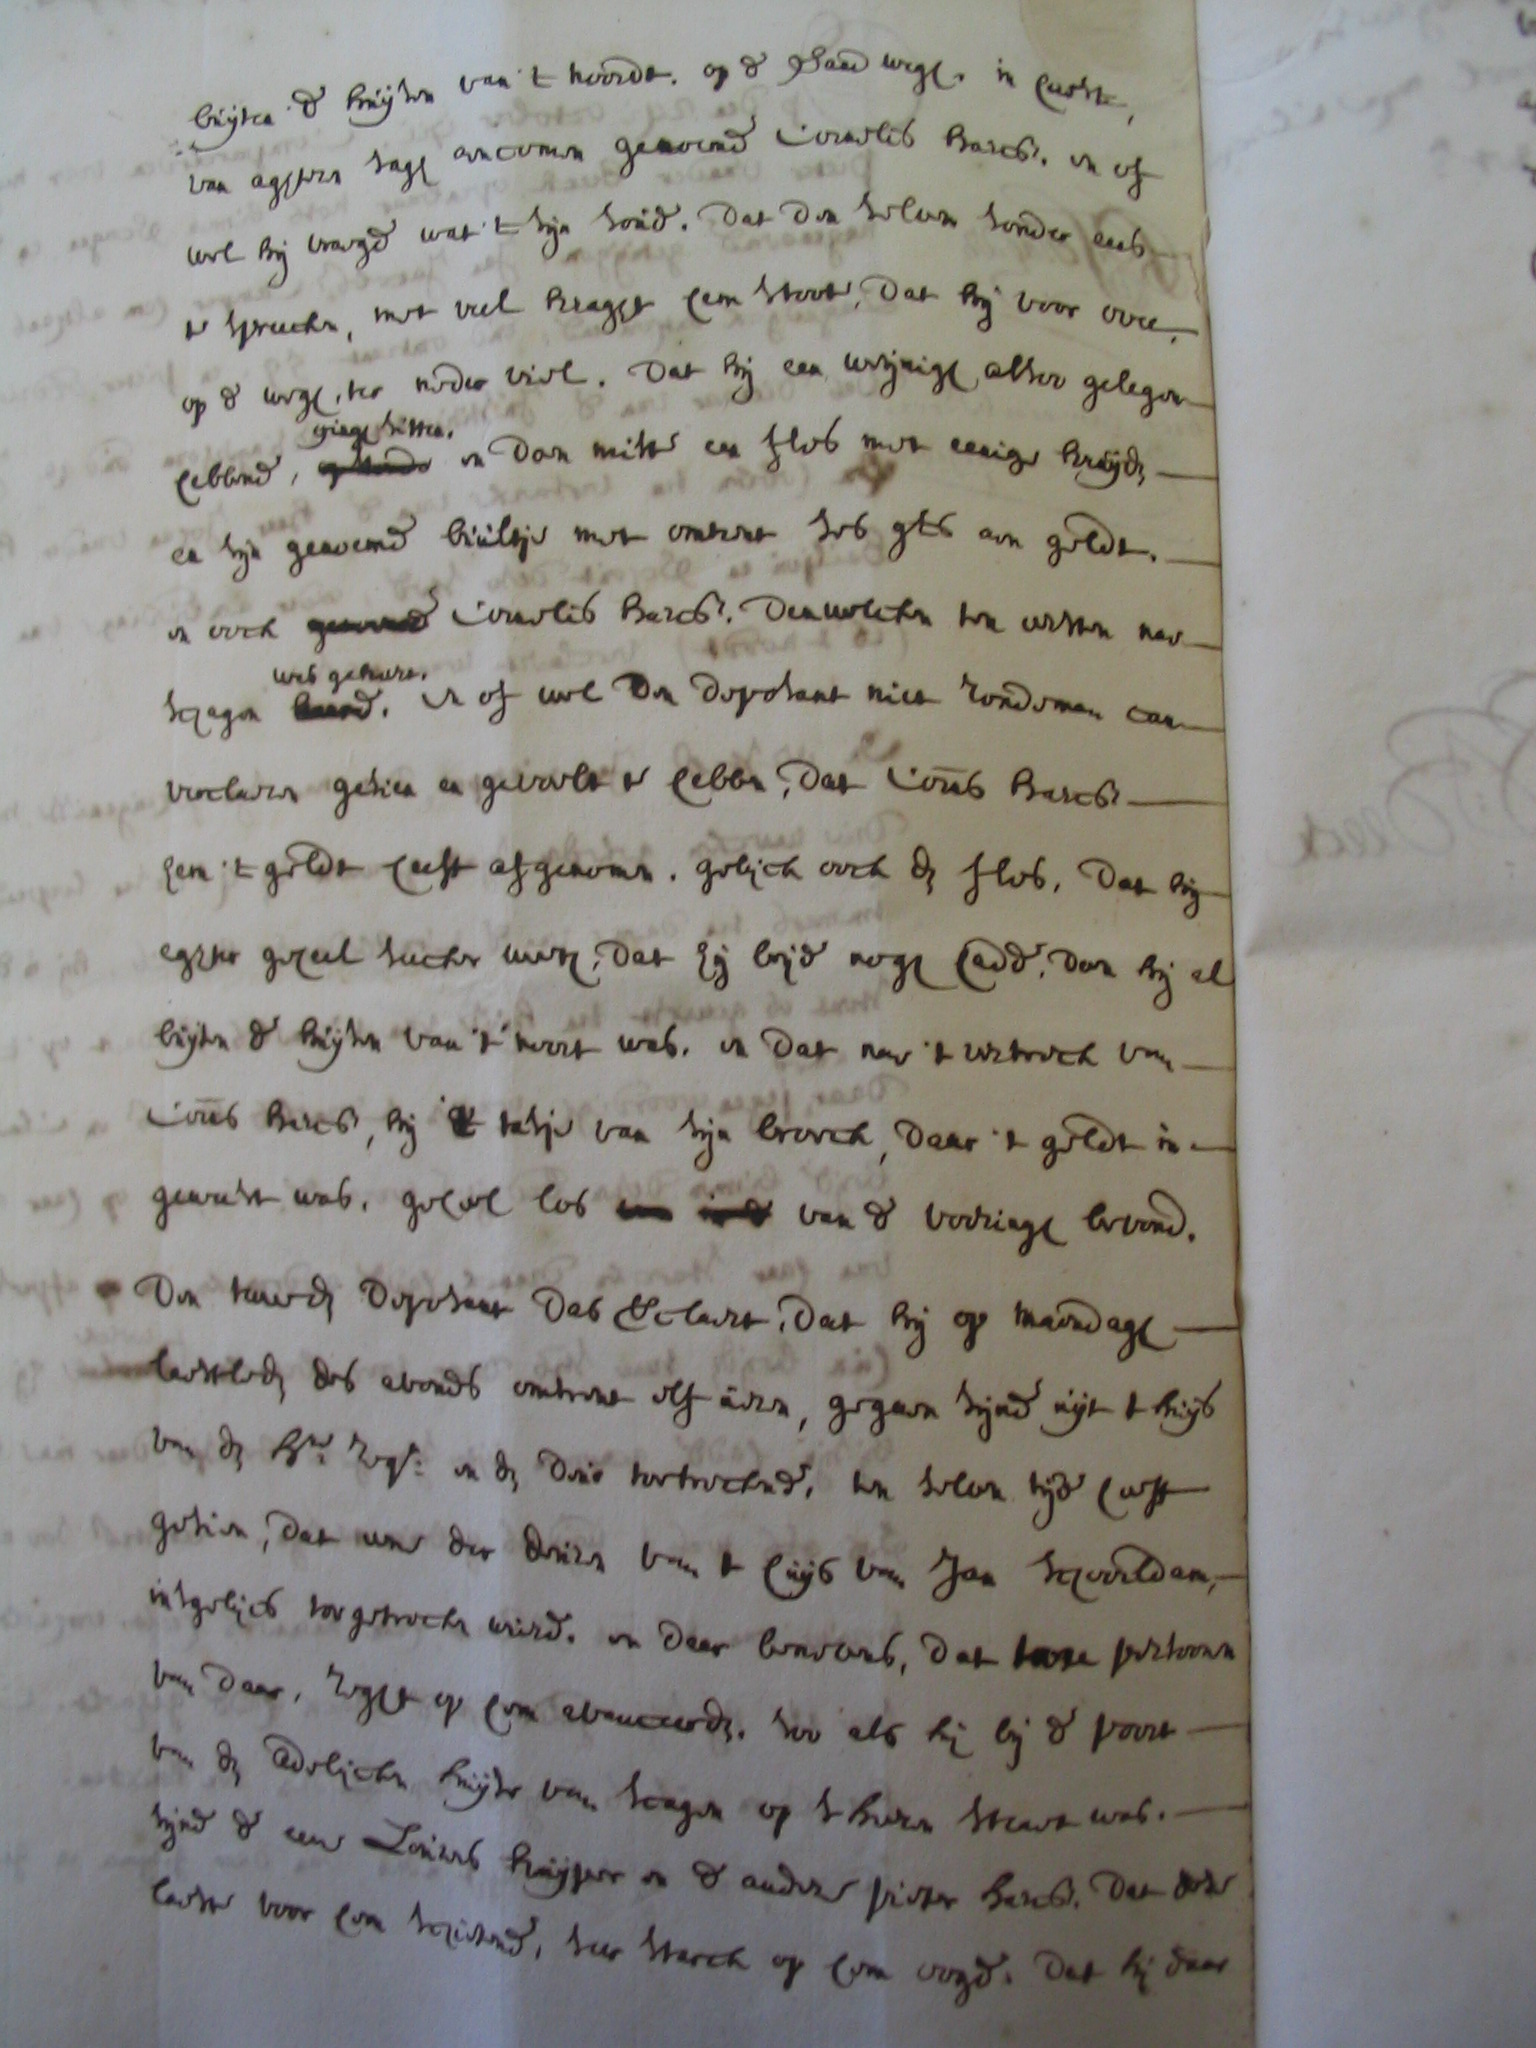 buijten de huijsen van 't noordt. op de Zaad wegh. in haast,
van agteren sagh aencomen genoemde Cornelis Barcs. en of
wel hij vraegde wat 't sijn soude. Dat den selven sonder iets
te spreeken, met veel kraght hem stoote, Dat hij voor over,
op de wegh, ter neder viel. Dat hij een weijnigh alsoo gelegen
hebbende, ginge sitten. en doen miste een fles met eenige
en sijn genoemde buijltje met omtrent ses gls aen geldt.
en oock Cornelis Barcs. Denwelcken ten eersten nae
Schagen was gekeert. En of wel Den Deposant niet
verclaren gesien en gevoelt te hebben, Dat Corns Barcs
hem 't geldt heeft afgenomen. gelijck oock de fles, Dat hij
egter geheel seecker weet, Dat hij beijde nogh hadde, doen hij al
buijten de huijsen van 't noort was. en Dat nae 't vertreck van
Corns Barcs, hij 't tasje van sijn broeck, daer 't geldt in
geweest was. geheel los van de voeringh bevond.
Den tweede Deposant Das verclaert, Dat hij op maendagh
laestlede des avonds omtrent elf uiren, gegaen sijnde uijt 't huijs
van de Hr. en de deur toetreckende, ten selven tijde heeft
gesien, Dat een der deuren van 't huijs van Jan Schoorldam,
insgelijcs toegetrocken wierd. en Daer benevens, Dat twee persoonen
van daer, reght op hem avanceerde. soo als hij bij de poort
van de adelijcken huijse van Schagen op 't heeren straet was.
sijnde de eene Louris Kuijper en de andere Pieter Barcs. Dat dese
laeste voor hem schietende, seer sterck op hem oogde. Dat hij daer